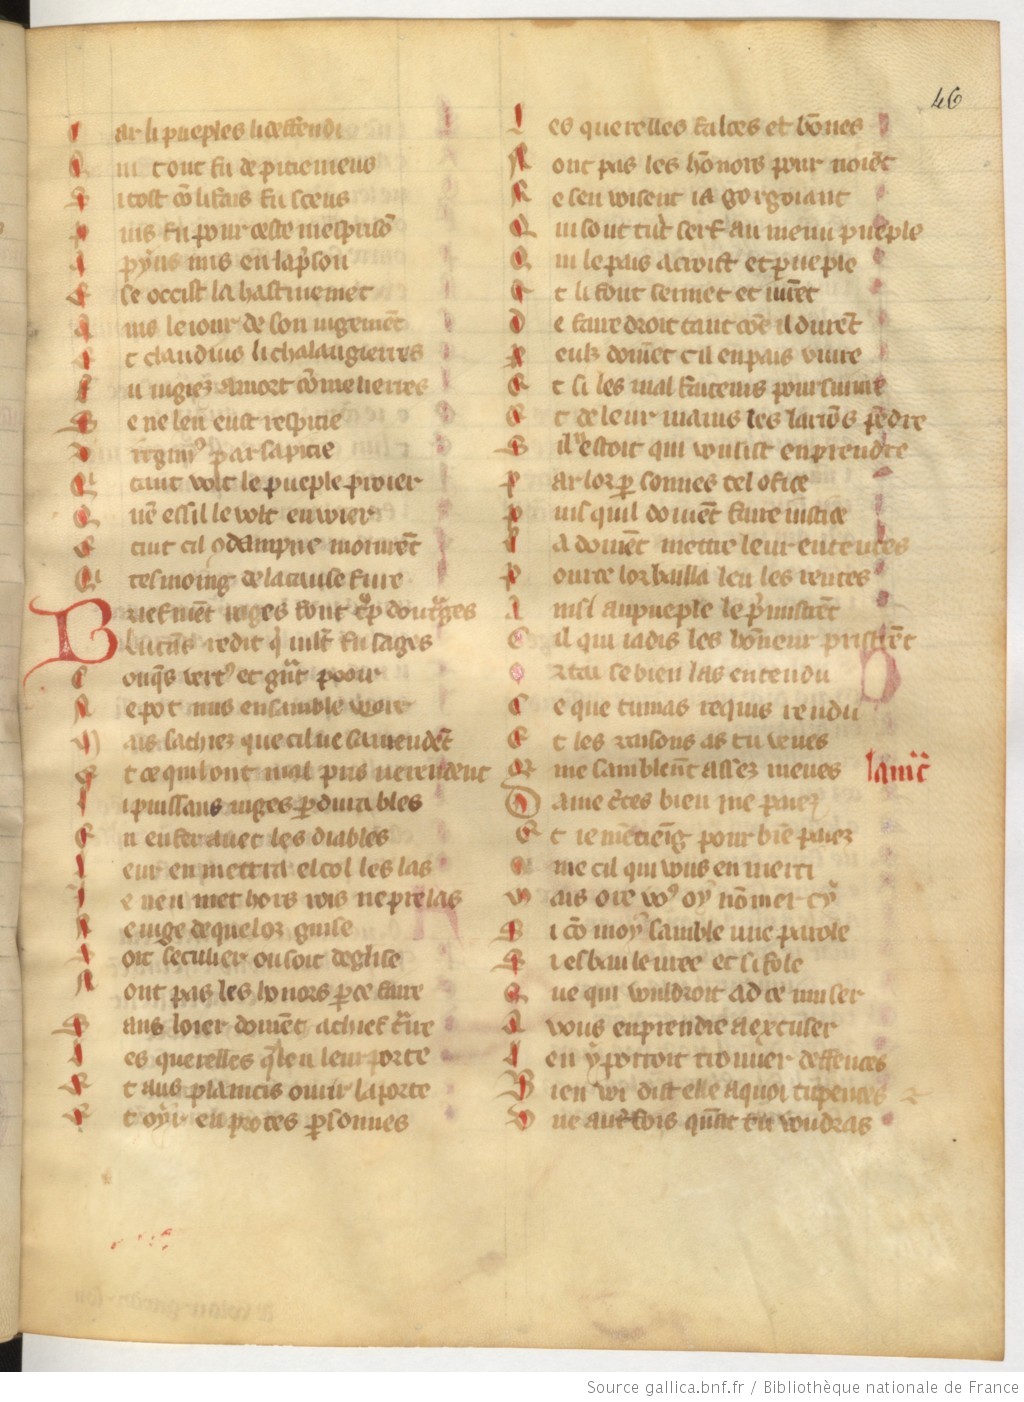 46
C ar li pueples li deffendi
Q ui tout fu de pitie meus
S i tost cō li fais fu sceus
P uis fu pour ceste mesprisō
A ppyus mis en la pͥson
S e occist la hastiuemēt
A ins le iour de son iugemēt
E t claudius li chalangierres
F u iugiez a mort cōme lierres
S e ne len eust respitie
uirginiꝰ par sa pitie
Q ui tant volt le pueple proier
Q uē essil le volt enuoier
E tuit cil ꝯdampne morurēt
Q ui tesmoing de la cause fure
B riefmēt iuges font
Lucans redit q̄ mlt fu sages
C onq̄s vertꝰ et grāt pooir
N e pot nus ensamble veoir
M ais sachiez que cil ne samendēt
E t ce quil ont mal pris ne rendent
L i puissans iuges pdurables
E n enfer auec les diables
L eur en mettra el col les las
I e nen met hors rois ne prelas
N e iuge de quelor guise
S oit seculier ou soit deglise
N ont pas les honors p ce faire
S ans loier doiuēt a chief traire
L es querelles q̄ len leur porte
E t aus plaintis ouurir la porte
E t oyr en propres psonnes
L es querelles fausses et bōnes
N ont pas les hōnors pour noiēt
N e sen voisent ia gorgoiant
Q ui sont tuit serf au menu pueple
Q ui le pais acroist et pueple
E t li font serment et iurēt
D e faire droit tant cōe il durēt
P eulz doiuēt cil en pais viure
E t si les maufaiteurs poursuiure
E t de leur mains les larrōs pēdre
S il nestoit qui vousist enprendre
P ar lor psonnes tel office
P uis quil doiuēt faire iustice
L a doiuēt mettre leur ententes
P our ce lor bailla len les rentes
A insi au pueple le pͥmistrēt
C il qui iadis les hōneurs pristrēt
O r tai se bien las entendu
C e que tu mas requis rendu
E t les raisons as tu veues
Q me samblent assez meues lamāt
D ame certes bien me paiez
E t ie mē tieng pour biē paiez
C me cil qui vous en merci
M ais ore voꝰ oy nōmer cy
S i cō moy samble une parole
S i esbauleuree et si fole
Q ue qui vouldroit a ce muser
A vous enprendre a excuser
L en ny porroit trouuer deffences
B ien voi dist elle a quoi tu pences
V ne autrefois quāt tu voudras